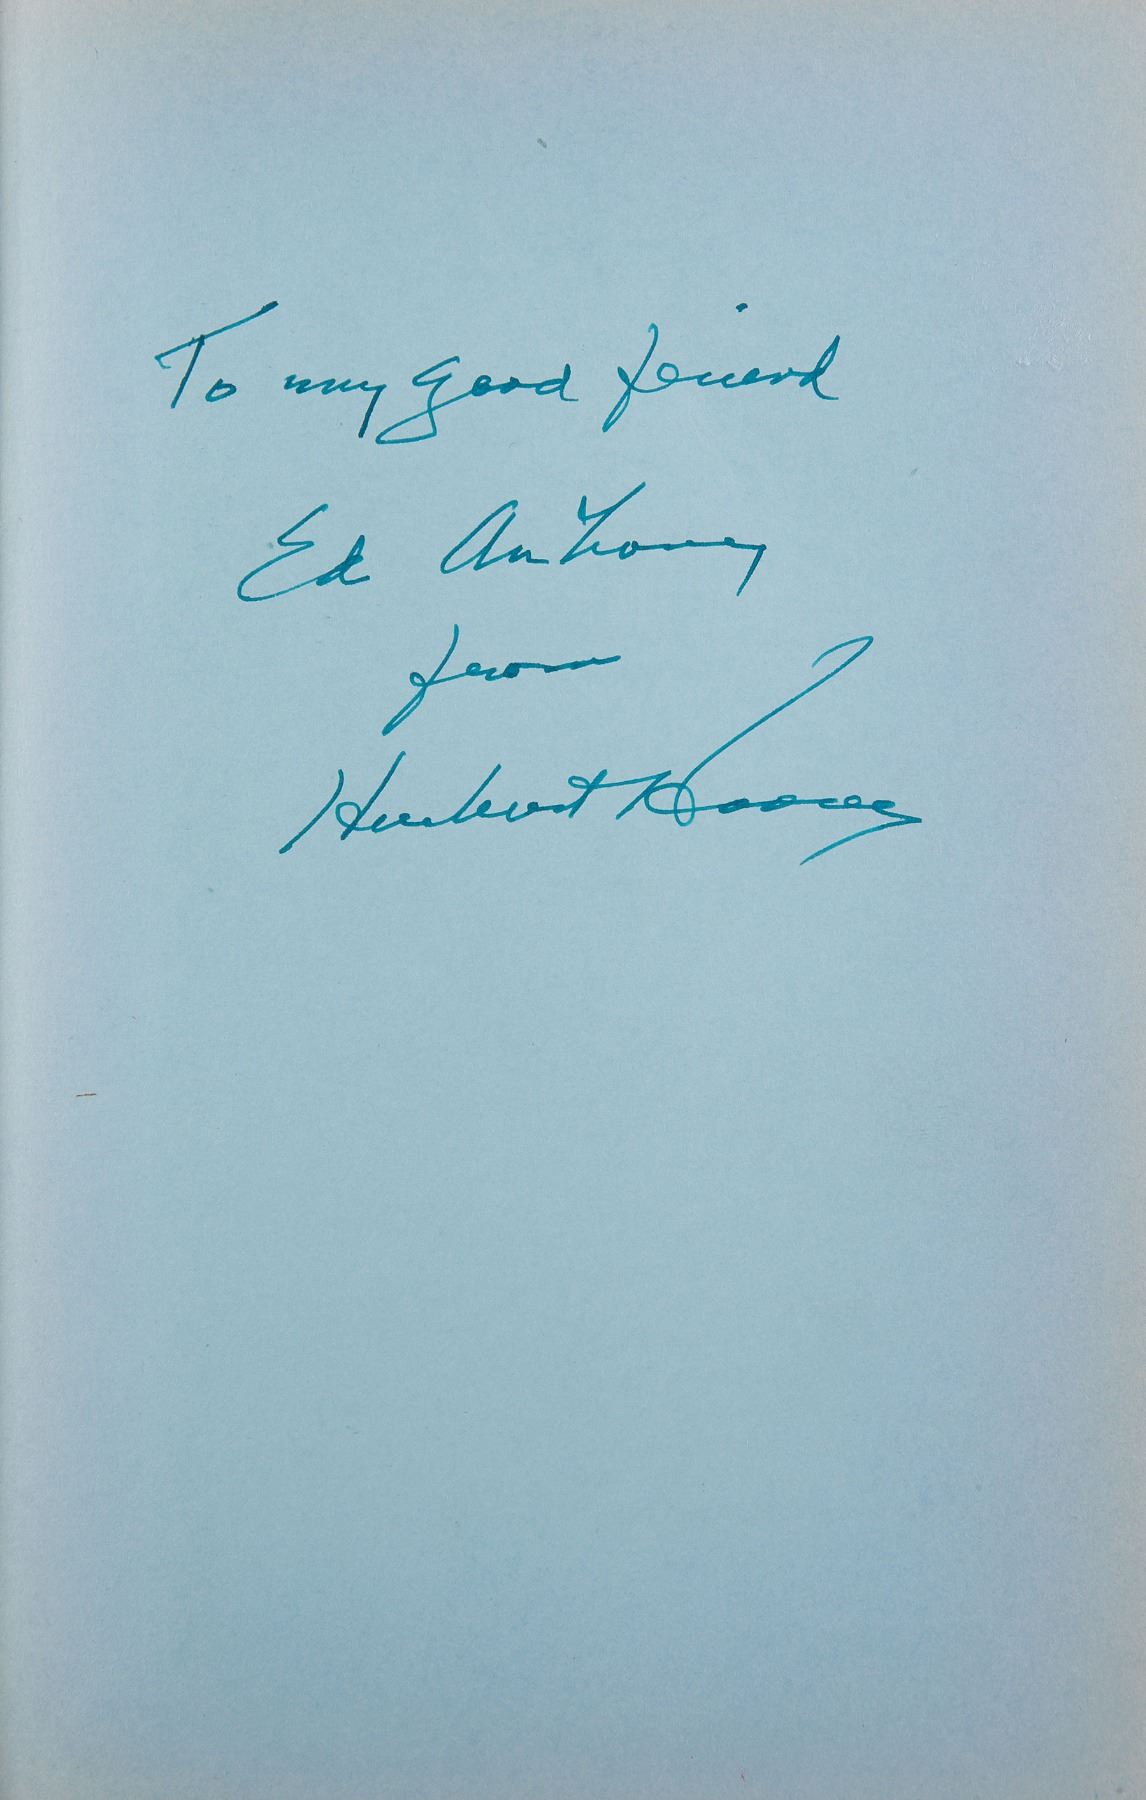 To my good friend
Ed Anthony
from
Herbert Hoover